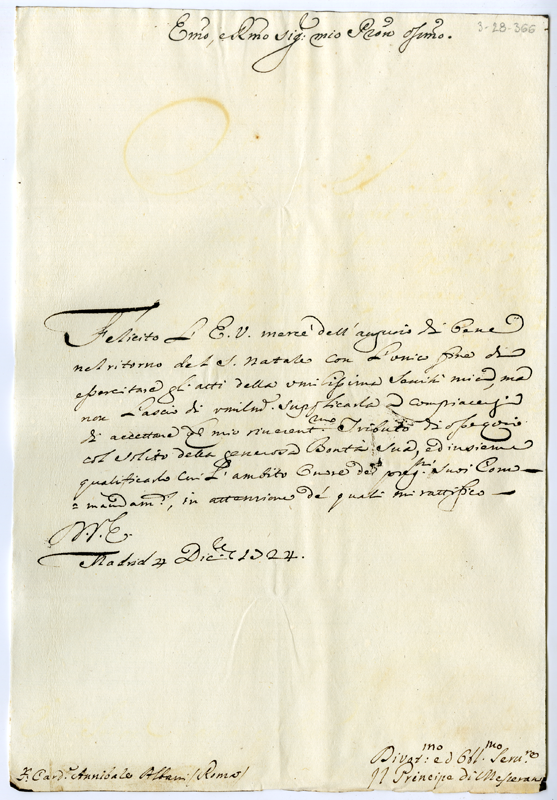 3-28-366
Emo, e Rmo Sig:r mio Pron Ossmo.
Felicito L'E.V. mercè dell'augurio di bene
nel ritorno del S. Natale con l'unico fine di
esercitare gli atti della umilissima Servitù mia, ma
non Lascio di umilmte supplicarla a compiacersi
di accettare il mio riverentissimo Tributo di ossequio
col solito della generosa Bontà Sua, ed insieme
qualificarlo cu l'ambito Onore de preg:mi Suoi Com-
=mandam:ti, in attenzione de' quali mi rattifico
V.E.
Madrid 4 Dic:re 1724.
Divot:mo ed Obl:mo Serv:re
Il Principe di Masserano
S. Card:e Annibale Albani (Roma)